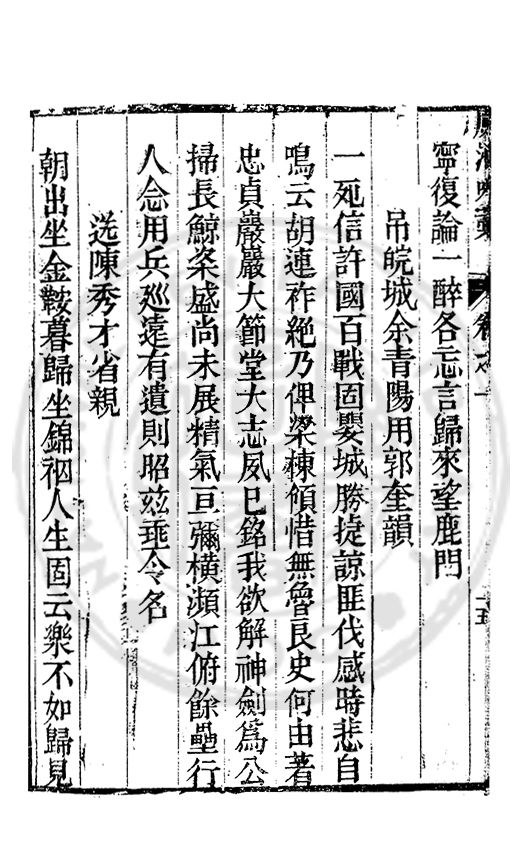 寧復論一醉各忘言歸來望鹿門
弔皖城余青陽用郭奎韻
一死信許國百戰固嬰城勝捷諒匪伐感時悲自
鳴云胡運祚絶乃俾梁棟傾惜無魯良史何由著
忠貞巖巖大節堂大志夙已銘我欲解神劍爲公
掃長鯨粢盛尚未展精氣亘彌橫瀕江俯餘壘行
人念用兵巡遠有遺則昭茲垂令名
送陳秀才省親
朝出坐金鞍暮歸坐錦裀人生固云樂不如歸見